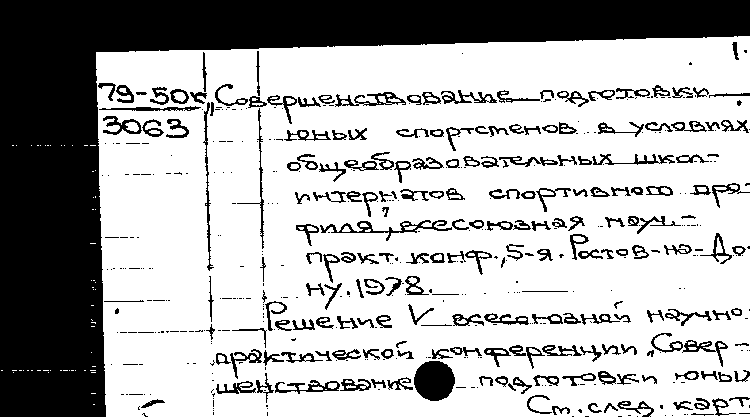 1.
79-50к „Совершенствование подготовки
3063 юных спортсменов в условиях
общеобразовательных школ-
интернатов спортивного про-
филя", всесоюзная науч.-
практ. конф., 5-я. Ростов-на-До-
ну. 1978.
Решение V всесоюзной научно-
практической конференции „Совер-
шенствование подготовки юных
См. след. карт